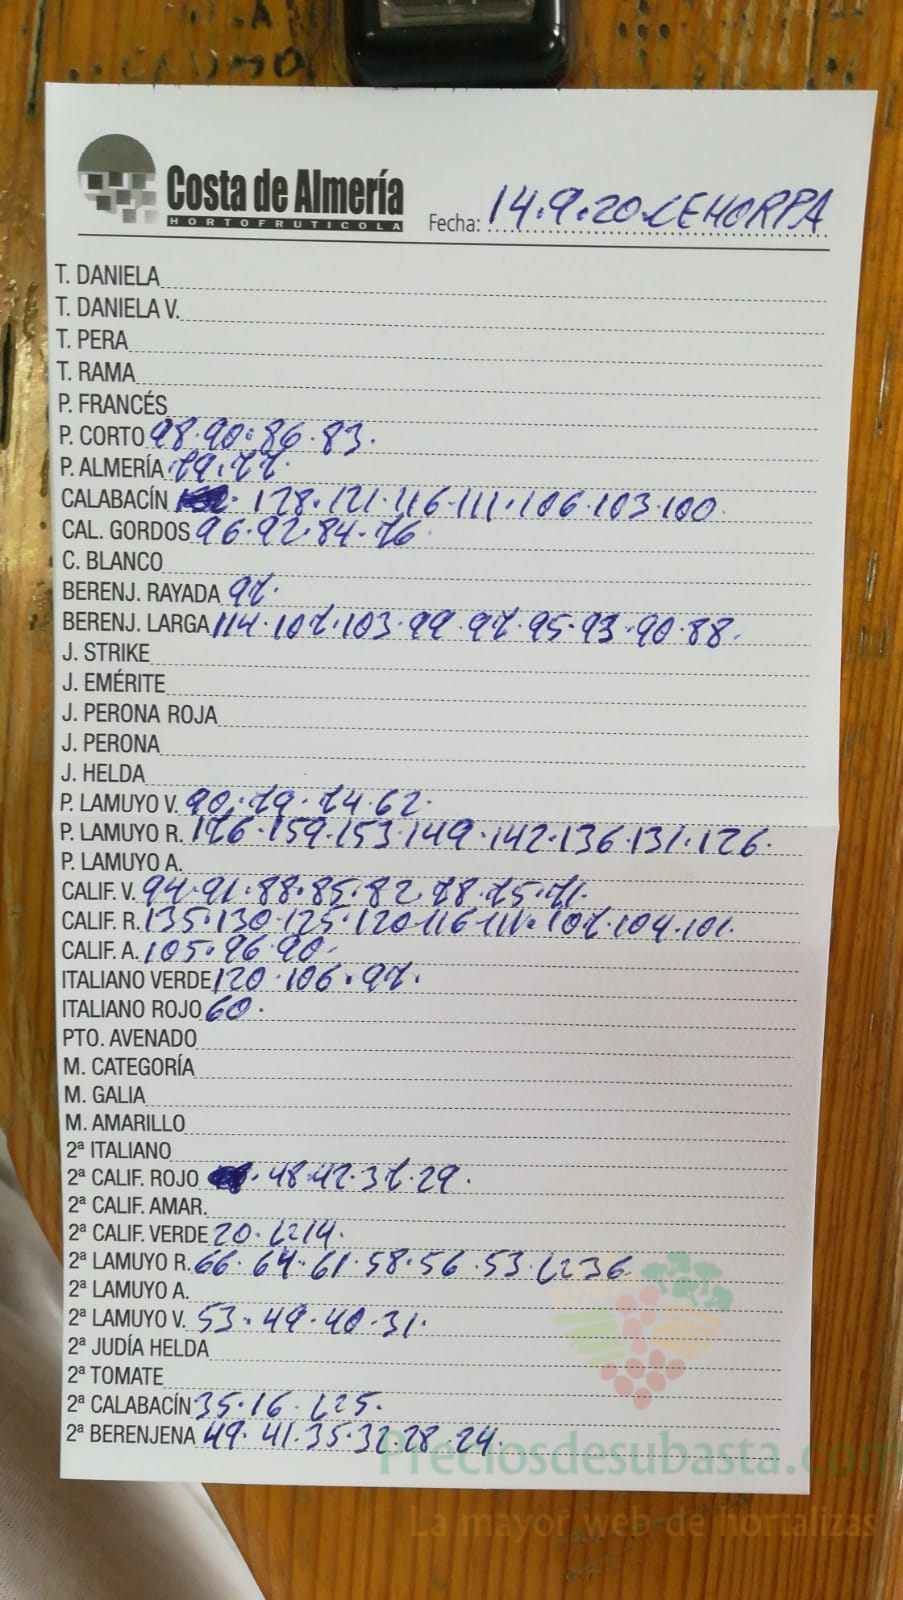 Costa de Almería
HORTOFRUTICOLA
Fecha: 14.9.20. CEHORPA
T. DANIELA
T. DANIELA V.
T. PERA
T. RAMA
P. FRANCÉS
P. CORTO 98.90.86.83.
P. ALMERÍA 79.77.
CALABACÍN 128.121.116.111.106.103.100
CAL. GORDOS 96.92.84.76
C. BLANCO
BERENJ. RAYADA 97.
BERENJ. LARGA 114.107.103.99.97.95.93.90.88.
J. STRIKE
J. EMÉRITE
J. PERONA ROJA
J. PERONA
J. HELDA
P. LAMUYO V. 90.79.74.62.
P. LAMUYO R. 176.159.153.149.142.136.131.126.
P. LAMUYO A.
CALIF. V. 94.91.88.85.82.78.75.71.
CALIF. R. 135.130.125.120.116.111.107.104.101.
CALIF. A. 105.96.90.
ITALIANO VERDE 120.106.97.
ITALIANO ROJO 60.
PTO. AVENADO
M. CATEGORÍA
M. GALIA
M. AMARILLO
2ª ITALIANO
2ª CALIF. ROJO 48.42.37.29.
2ª CALIF. AMAR.
2ª CALIF. VERDE 20.
2ª LAMUYO R. 66.64.61.58.56.53.
2ª LAMUYO A.
2ª LAMUYO V. 53.49.40.31.
2ª JUDÍA HELDA
2ª TOMATE
2ª CALABACÍN 35.16.
2ª BERENJENA 49.41.35.32.28.24.
Preciosdesubasta.com
La mayor web de hortalizas